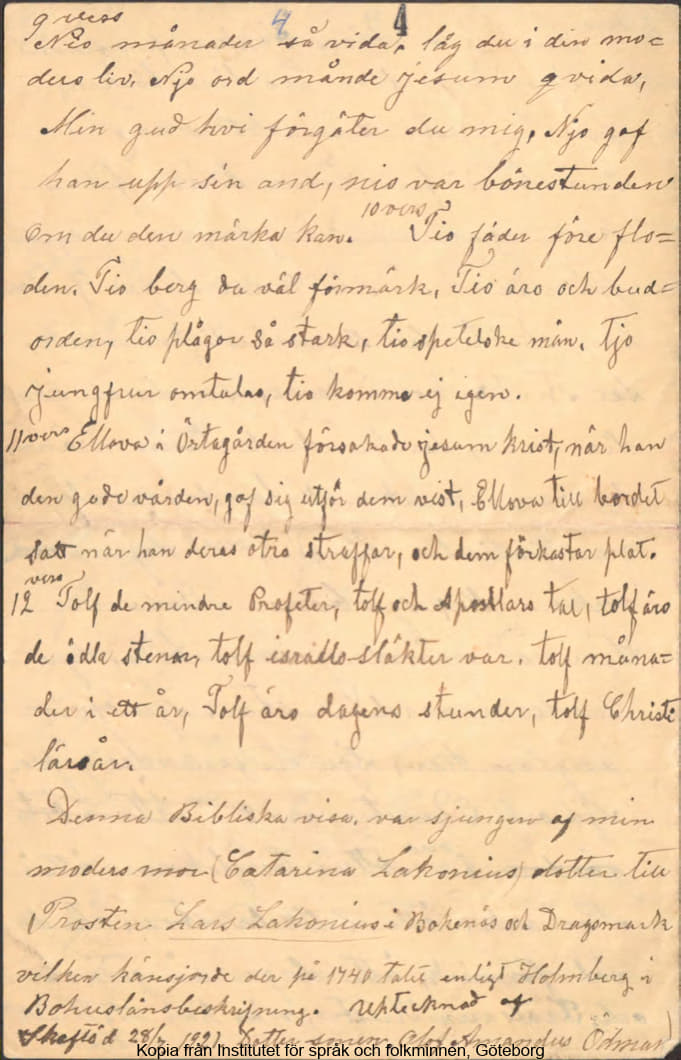 4 4
9 vers
Nio månader så vida, låg du i din mo=
ders liv. Njo ord månde jesum qvida,
Min gud hvi förgäter du mig, Njo gaf
han upp sin and, nio var bönestunden
Om du den märka kan. 10 vers Tio fäder före flo=
den. Tio berg du väl förmärk, Tio äro och bud=
orden, tio plågor så stark, tio spetelske män. tjo
jungfrur omtalas, tio komma ej igen.
11 vers Ellova i Örtagården försakade jesum krist, när han
den gode vården, gaf sig utför dem vist, Ellova till bordet
satt när han deras otro straffar, och dem förkastar plat.
vers
12 Tolf de mindre Profeter, tolf och Apostlars tal, tolf äro
de ädla stenar, tolf israills släkter var. tolf måna=
der i ett år, Tolf äro dagens stunder, tolf Christi
läroår.
Denna Bibliska visa. var sjungen af min
moders mor (Catarina Lakonius) dotter till
Prosten Lars Lakonius i Bokenäs och Dragsmark
vilken tjänsjorde der på 1740 talet enligt Holmberg i
Bohuslänsbeskrifning. Uptecknad af
Skaftöd 28/7 1921 Dotter sonen Olof Amandus Ödman
Kopia från Institutet för språk och folkminnen, Göteborg